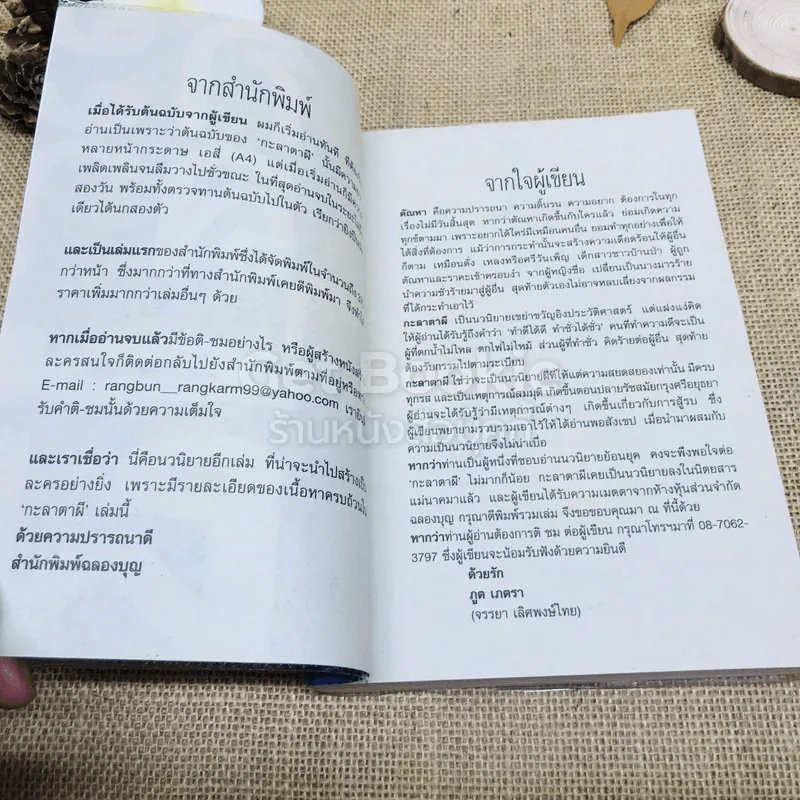 จากสำนักพิมพ์
เมื่อได้รับต้นฉบับจากผู้เขียน ผมก็เริ่มอ่านทันที ที่ต้อง
อ่านเป็นเพราะว่าต้นฉบับของ 'กะลาตาผี' นั้นมีความ
หลายหน้ากระดาษ เอสี่ (A4) แต่เมื่อเริ่มอ่านก็มีความ
เพลิดเพลินจนลืมวางไปชั่วขณะ ในที่สุดอ่านจบในระยะ
สองวัน พร้อมทั้งตรวจทานต้นฉบับไปในตัว เรียกว่ายิงปืน
เดียวได้นกสองตัว
และเป็นเล่มแรกของสำนักพิมพ์ซึ่งได้จัดพิมพ์ในจำนวนถึง
กว่าหน้า ซึ่งมากกว่าที่ทางสำนักพิมพ์เคยตีพิมพ์มา จึง
ราคาเพิ่มมากกว่าเล่มอื่นๆ ด้วย
หากเมื่ออ่านจบแล้วมีข้อติ-ชมอย่างไร หรือผู้สร้างหนัง
ละครสนใจก็ติดต่อกลับไปยังสำนักพิมพ์ตามที่อยู่หรือทาง
E-mail : rangbun__rangkarm99@yahoo.com เรายินดี
รับคำติ-ชมนั้นด้วยความเต็มใจ
และเราเชื่อว่า นี่คือนวนิยายอีกเล่ม ที่น่าจะนำไปสร้างเป็น
ละครอย่างยิ่ง เพราะมีรายละเอียดของเนื้อหาครบถ้วนใน
'กะลาตาผี' เล่มนี้
ด้วยความปรารถนาดี
สำนักพิมพ์ฉลองบุญ
จากใจผู้เขียน
ตัณหา คือความปรารถนา ความดิ้นรน ความอยาก ต้องการในทุก
เรื่องไม่มีวันสิ้นสุด หากว่าตัณหาเกิดขึ้นกับใครแล้ว ย่อมเกิดความ
ทุกข์ตามมา เพราะอยากได้ใคร่มีเหมือนคนอื่น ยอมทำทุกอย่างเพื่อให้
ได้สิ่งที่ต้องการ แม้ว่าการกระทำนั้นจะสร้างความเดือดร้อนให้ผู้อื่น
ก็ตาม เหมือนดั่ง เพลงหรือศรีวันเพ็ญ เด็กสาวชาวบ้านป่า ผู้ถูก
ตัณหาและราคะเข้าครอบงำ จากผู้หญิงซื่อ เปลี่ยนเป็นนางมารร้าย
นำความชั่วร้ายมาสู่ผู้อื่น สุดท้ายตัวเองไม่อาจหลบเลี่ยงจากผลกรรม
ที่ได้กระทำเอาไว้
กะลาตาผี เป็นนวนิยายเขย่าขวัญอิงประวัติศาสตร์ แต่แฝงแง่คิด
ให้ผู้อ่านได้รับรู้ถึงคำว่า 'ทำดีได้ดี ทำชั่วได้ชั่ว' คนที่ทำความดีจะเป็น
ผู้ที่ตกน้ำไม่ไหล ตกไฟไม่ไหม้ ส่วนผู้ที่ทำชั่ว คิดร้ายต่อผู้อื่น สุดท้าย
ต้องรับกรรมไปตามระเบียบ
กะลาตาผี ใช่ว่าจะเป็นนวนิยายผีที่ให้แต่ความสยดสยองเท่านั้น มีครบ
ทุกรส และเป็นเหตุการณ์สมมุติ เกิดขึ้นตอนปลายรัชสมัยกรุงศรีอยุธยา
ผู้อ่านจะได้รับรู้ว่ามีเหตุการณ์ต่างๆ เกิดขึ้นเกี่ยวกับการสู้รบ ซึ่ง
ผู้เขียนพยายามรวบรวมเอาไว้ให้ได้อ่านพอสังเขป เมื่อนำมาผสมกับ
ความเป็นนวนิยายจึงไม่น่าเบื่อ
หากว่าท่านเป็นผู้หนึ่งที่ชอบอ่านนวนิยายย้อนยุค คงจะพึงพอใจต่อ
'กะลาตาผี' ไม่มากก็น้อย กะลาตาผีเคยเป็นนวนิยายลงในนิตยสาร
แม่นาคมาแล้ว และผู้เขียนได้รับความเมตตาจากห้างหุ้นส่วนจำกัด
ฉลองบุญ กรุณาตีพิมพ์รวมเล่ม จึงขอขอบคุณมา ณ ที่นี้ด้วย
หากว่าท่านผู้อ่านต้องการติ ชม ต่อผู้เขียน กรุณาโทรฯมาที่ 08-7062-
3797 ซึ่งผู้เขียนจะน้อมรับฟังด้วยความยินดี
ด้วยรัก
ภูต เภตรา
(จรรยา เลิศพงษ์ไทย)